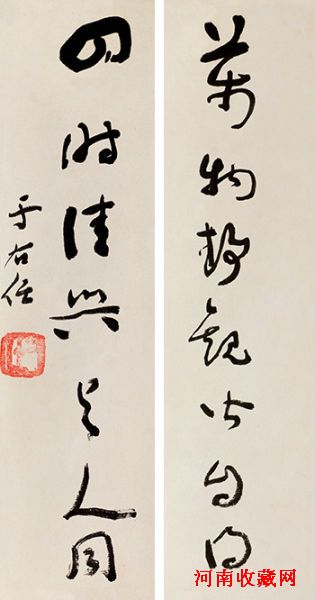 萬物靜觀皆自得
四時佳興与人同
于右任
河南收藏网